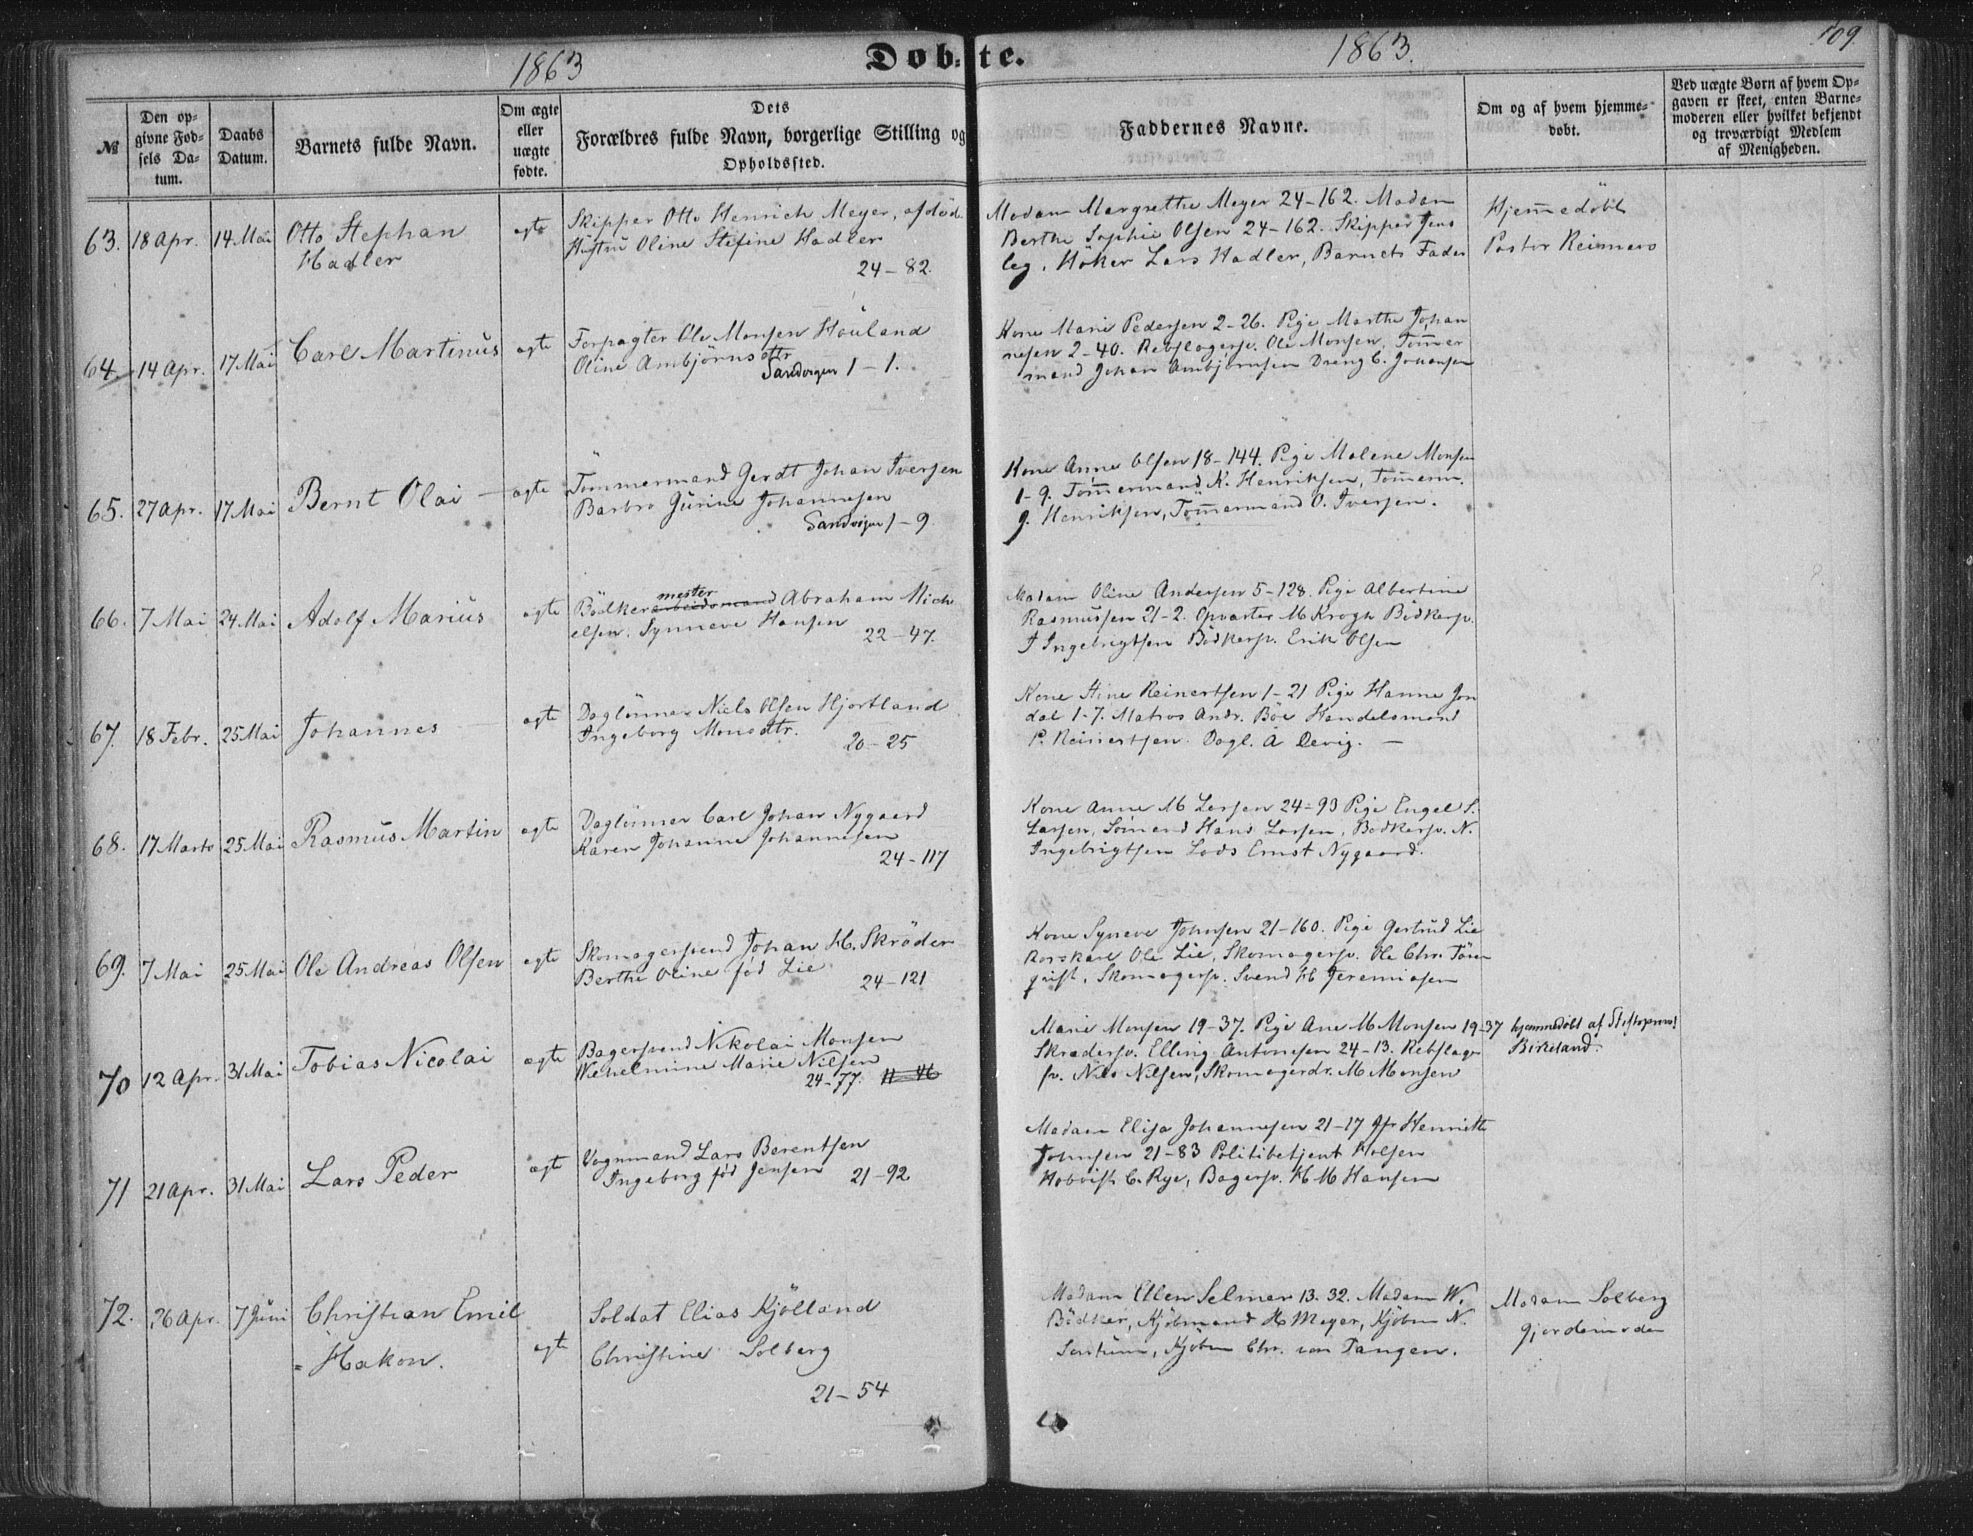 1863
Døb-te.
1863.
109
№
Den opgivne Fødsels Datum.
Daabs Datum.
Barnets fulde Navn.
Om ægte eller uægte fødte.
Dets Forældres fulde Navn, borgerlige Stilling og Opholdssted.
Faddernes Navne.
Om og af hvem hjemmedøbt.
Ved uægte Børn af hvem Opgaven er skeet, enten Barnemoderen eller hvilket bekjendt og troværdigt Medlem af Menigheden.
63. 18 Apr. 14 Mai Otto Stephan
Hadler
egte
Skipper Otto Henrich Meyer, afdød
Hustru Oline Stefine Hadler
24-82.
Madam Margrethe Meyer 24-162. Madam
Berthe Sophie Olsen 24-162. Skipper Jens
leg. Höker Lars Hadler, Barnets Fader
Hjemedöbt
Pastor Reimers
64. 14 Apr. 17 Mai Carl Martinus egte
Forpagter Ole Monsen Houland
Oline Ambjörnsdtr
Sandvigen 1-1.
Kone Marie Pedersen 2-26. Pige Marthe Johan
nesen 2-40. Rebslagersv. Ole Monsen, Tömer
mand Johan Ambjörnsen Dreng C. Johansen
65. 27 Apr. 17 Mai Bernt Olai - egte
Tömmermand Gerdt Johan Iversen
Barbro Gurine Johannesen
Sandvigen 1-9
Kone Anne Olsen 18-144. Pige Malene Monsen
1-9. Tömermand K. Henriksen, Tömerm.
J. Henriksen, Tömermand O. Iversen.
66. 7 Mai 24 Mai Adolf Marius egte
mester
Bödker arbeidsmand Abraham Mich
elsen. Synneve Hansen
22-47.
Madam Oline Andersen 5-128. Pige Albertine
Rasmussen 21-2. Opvarter M Krogh Bödkersv.
I Ingebrigtsen Bödkersv. Erik Olsen
67. 18 Febr. 25 Mai Johannes egte
Daglönner Niels Olsen Hjortland
Ingeborg Monsdtr.
20-25
Kone Stine Reinertsen 1-21 Pige Hanne Jon
dal 1-7. Matros Andr. Böe Handelsmand
P. Reinertsen. Dagl. A Devig. -
68. 17 Marts 25 Mai Rasmus Martin egte
Daglönner Carl Johan Nygaard
Karen Johanne Johannesen
24-117
Kone Anne M Larsen 24-93 Pige Engel S.
Larsen, Sömand Hans Larsen, Bödkersv. N.
Ingebrigtsen Lods Ernst Nygaard.
69. 7 Mai 25 Mai Ole Andreas Olsen egte
Skomagersvend Johan H. Skröder
Berthe Oline fød Lie
24-121
Kone Syneve Johnsen 21-160. Pige Gertrud Lie
Korskarl Ole Lie, Skomagersv. Ole Chr. Törn
quist, Skomagersv. Svend H Jeremiasen
70 12 Apr. 31 Mai Tobias Nicolai egte
Bagersvend Nikolai Monsen
Wilhelmine Marie Nilsen
24-77. 11-46
Marie Monsen 19-37. Pige Ane M Monsen 19-37
Skrædersv. Elling Antonesen 24-13. Rebslager
sv. Nils Nilsen, Skomagerdr. M Monsen
hjemmedöbt af Stiftsprovst
Birkeland.
71 21 Apr. 31 Mai Lars Peder egte
Vognmand Lars Berentsen
Ingeborg fød Jensen 21-92
Madam Elisa Johannesen 21-17 Jfr Henriette
Johnsen 21-83 Politibetjent Holsen
Hobvist C. Rye, Bagersv. H M Hansen
72. 26 Apr. 7 Juni Christian Emil
Hakon.
egte
Soldat Elias Kjölland
Christine Solberg
21-54
Madam Ellen Selmer 13.32. Madam W.
Bödker, Kjöbmand H Meyer, Kjöbm N.
Sontum, Kjöbm Chr. von Tangen.
Madam Solberg
Gjordemoder